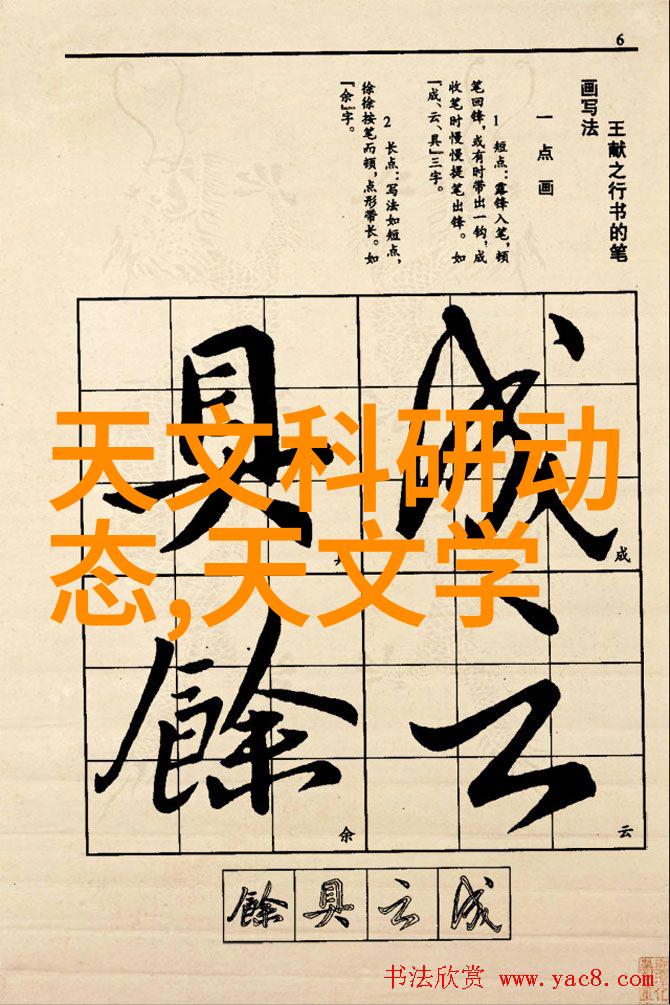 6
王献之行书的笔
画写法
一点画
1 短点：露锋入笔，顿
笔回锋，或有时带出一钩，成
收笔时慢慢提笔出锋。如
“成、云、具”三字。
2 长点：写法如短点，
徐徐按笔而顿，点形带长。如
“余”字。
成
具
云
餘
天文科研动
态,天文学
成
云
余
餘具云成
书法欣赏 www.yac8.com